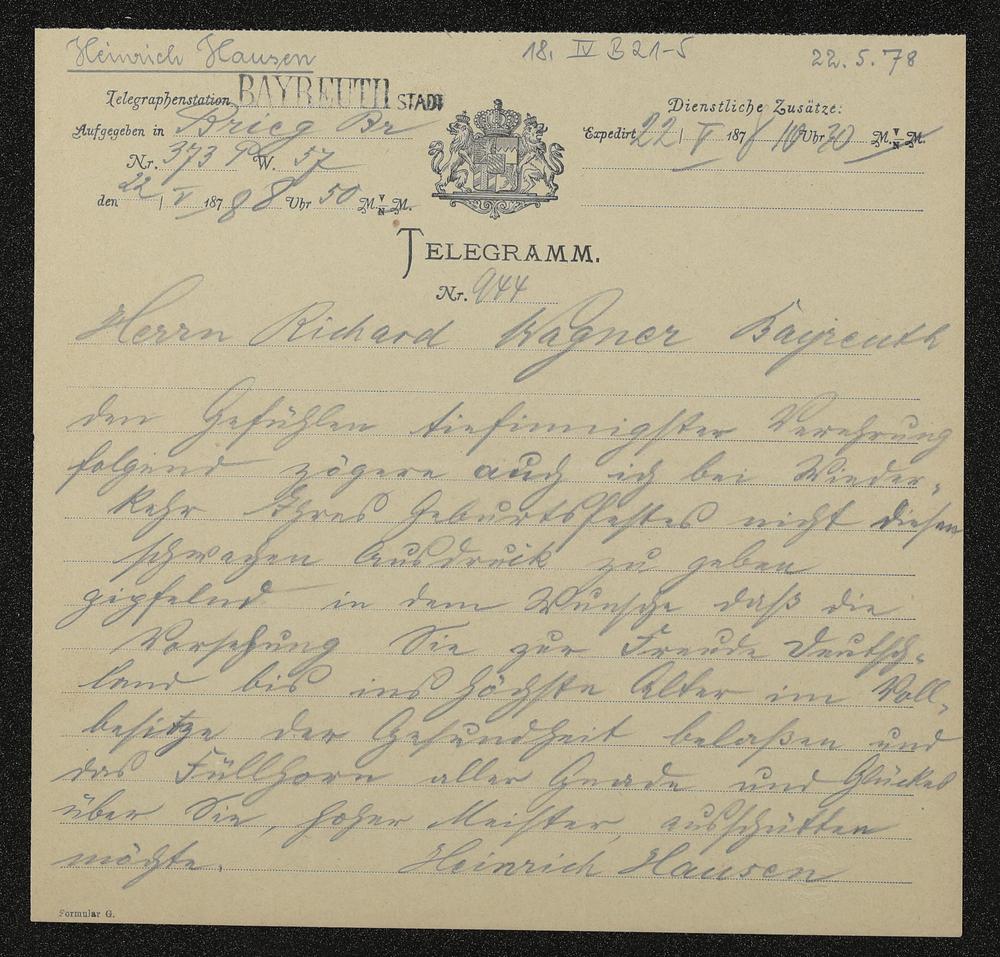 Heinrich Hausen 18. IV B 21-5 22.5.78
Telegraphenstation BAYREUTH STADT
Dienstliche Zusätze:
Aufgegeben in Brieg Br
Expedirt 22/V 1878 10 Uhr 30 M. V/N M.
Nr. 373 W. 57
den 22/V 1878 8 Uhr 50 M. V/N M.
TELEGRAMM.
Nr. 944
Herrn Richard Wagner Bayreuth
den Gefühlen tiefinnigster Verehrung
folgend zögere auch ich bei Wieder-
kehr Ihres Geburtsfestes nicht diesen
schwachen Ausdruck zu geben
gipfelnd in dem Wunsche daß die
Vorsehung Sie zur Freude Deutsch-
land bis ins höchste Alter im Voll-
besitze der Gesundheit belaßen und
das Füllhorn aller Gnade und Glückes
über Sie, hoher Meister, ausschütten
möchte. Heinrich Hausen
Formular G.